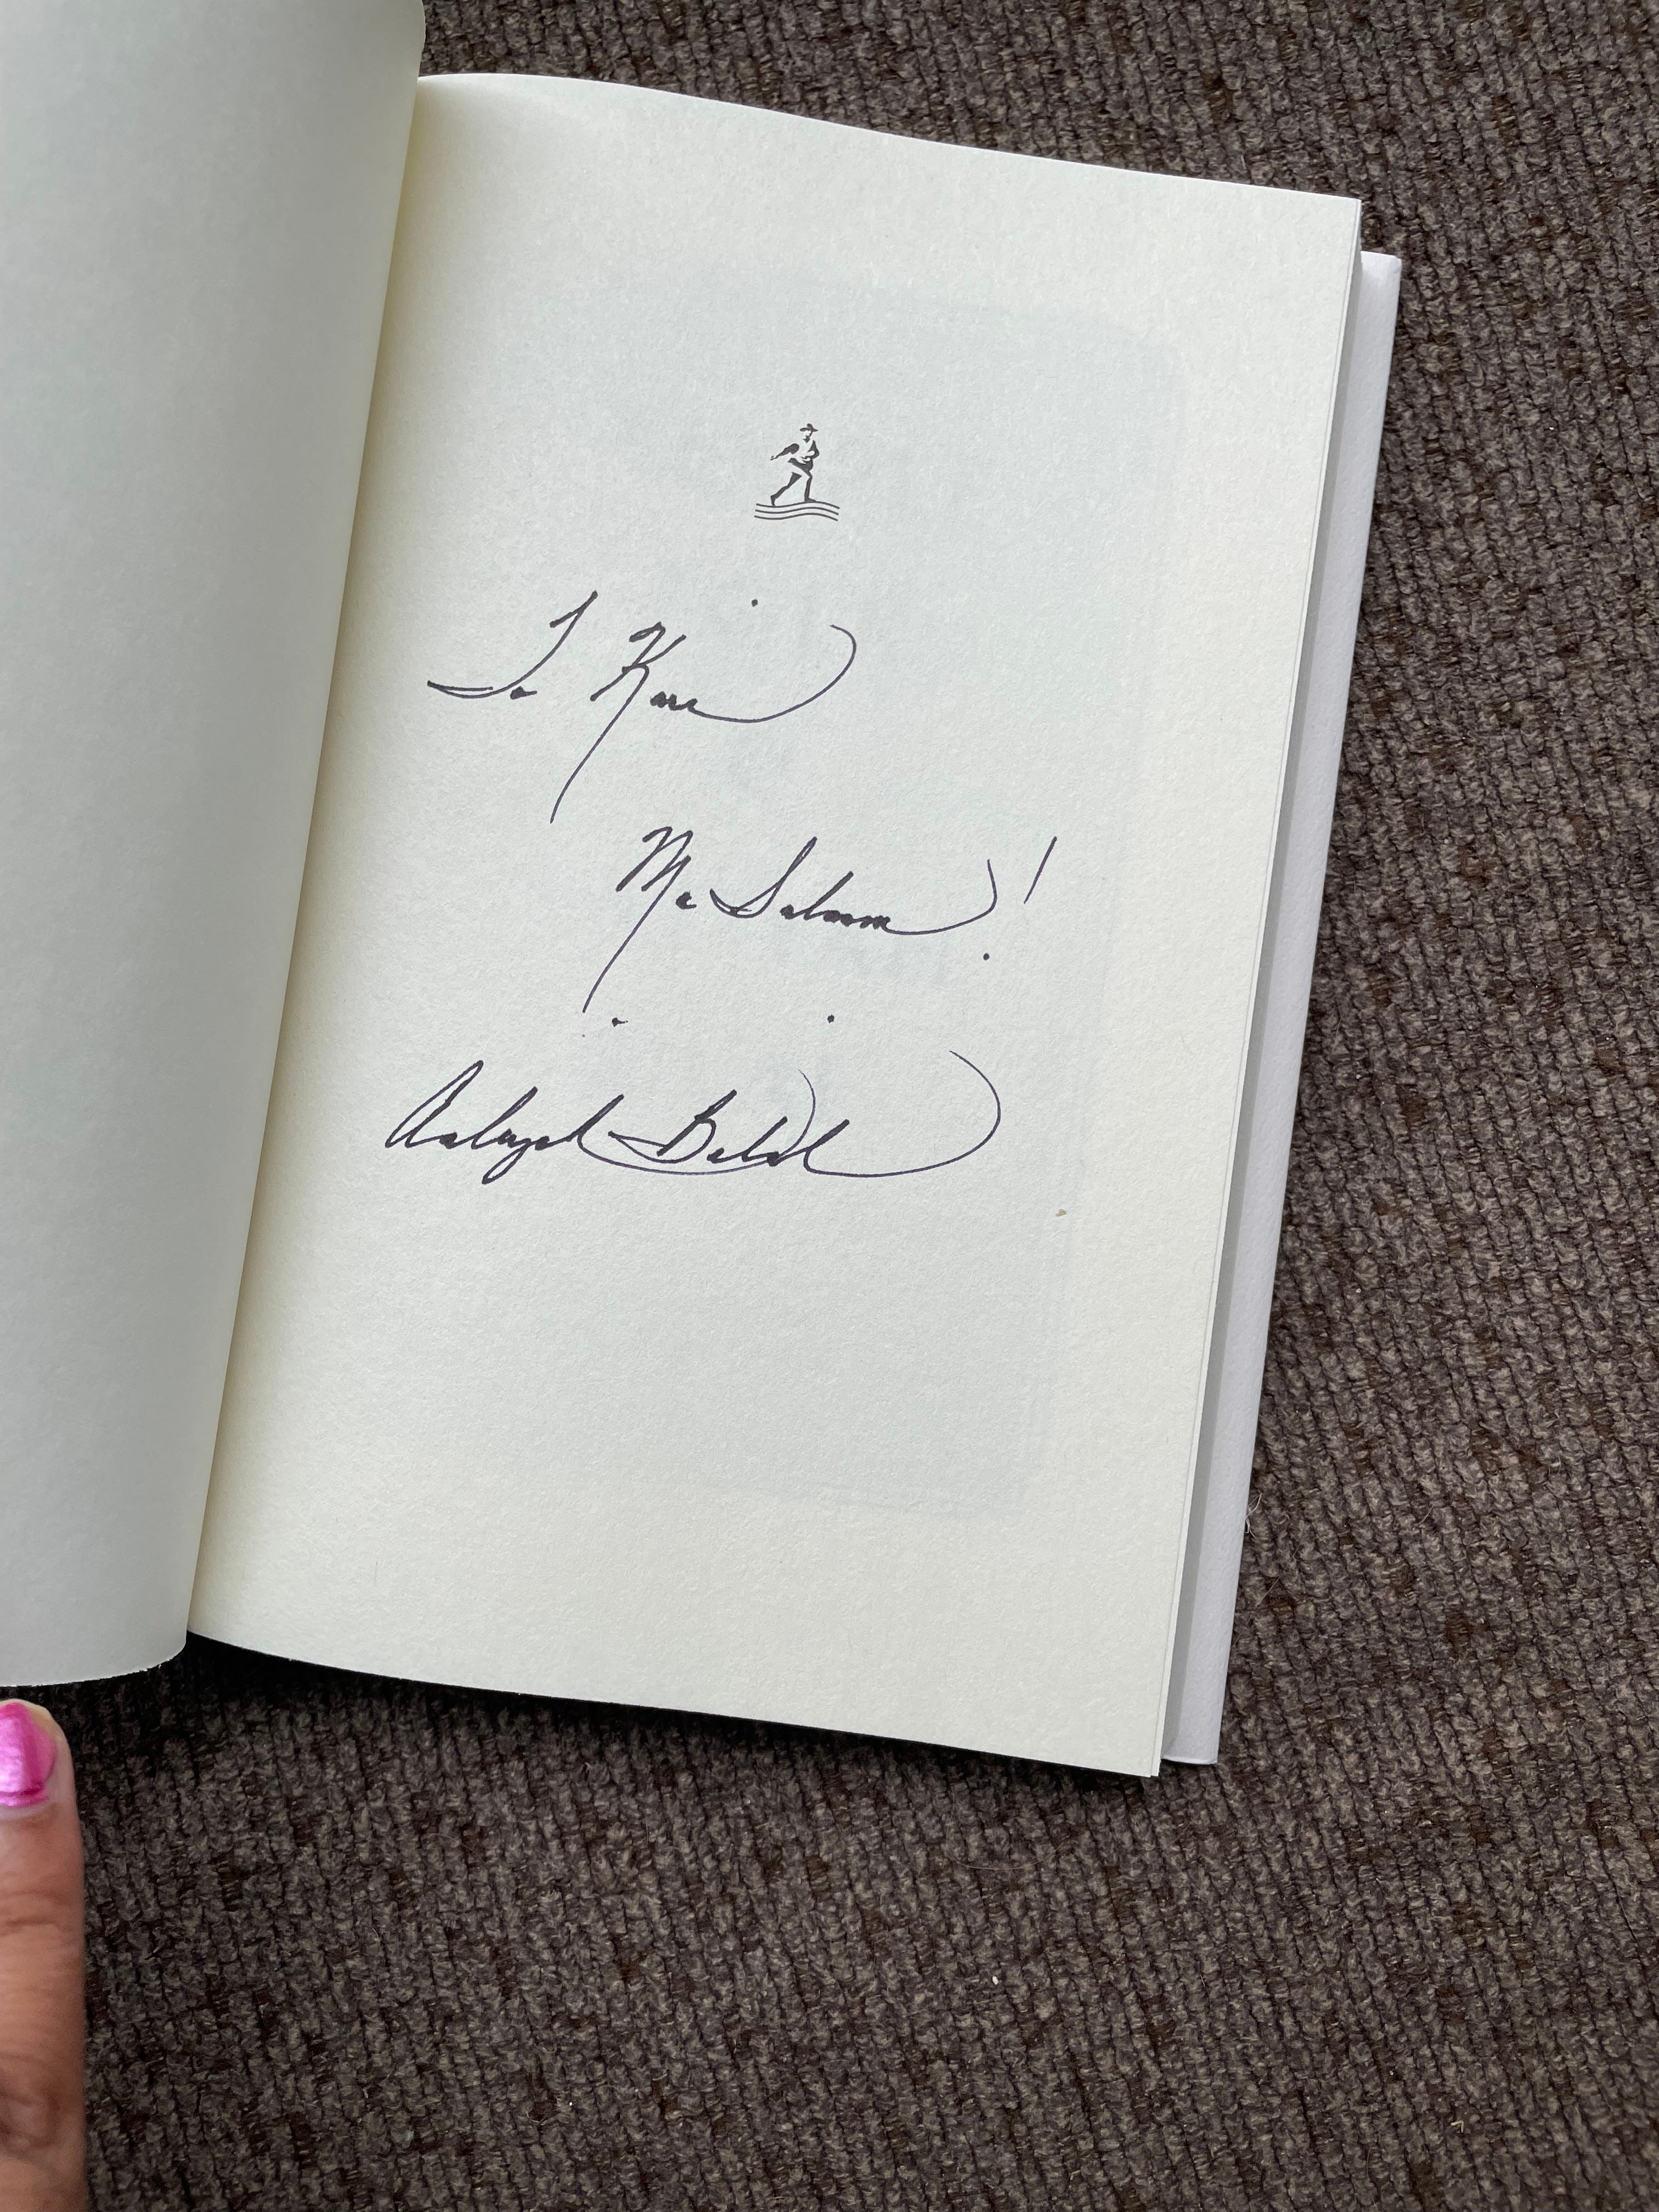 To Kari
Ma Salaama!
Aaliyah Bilal